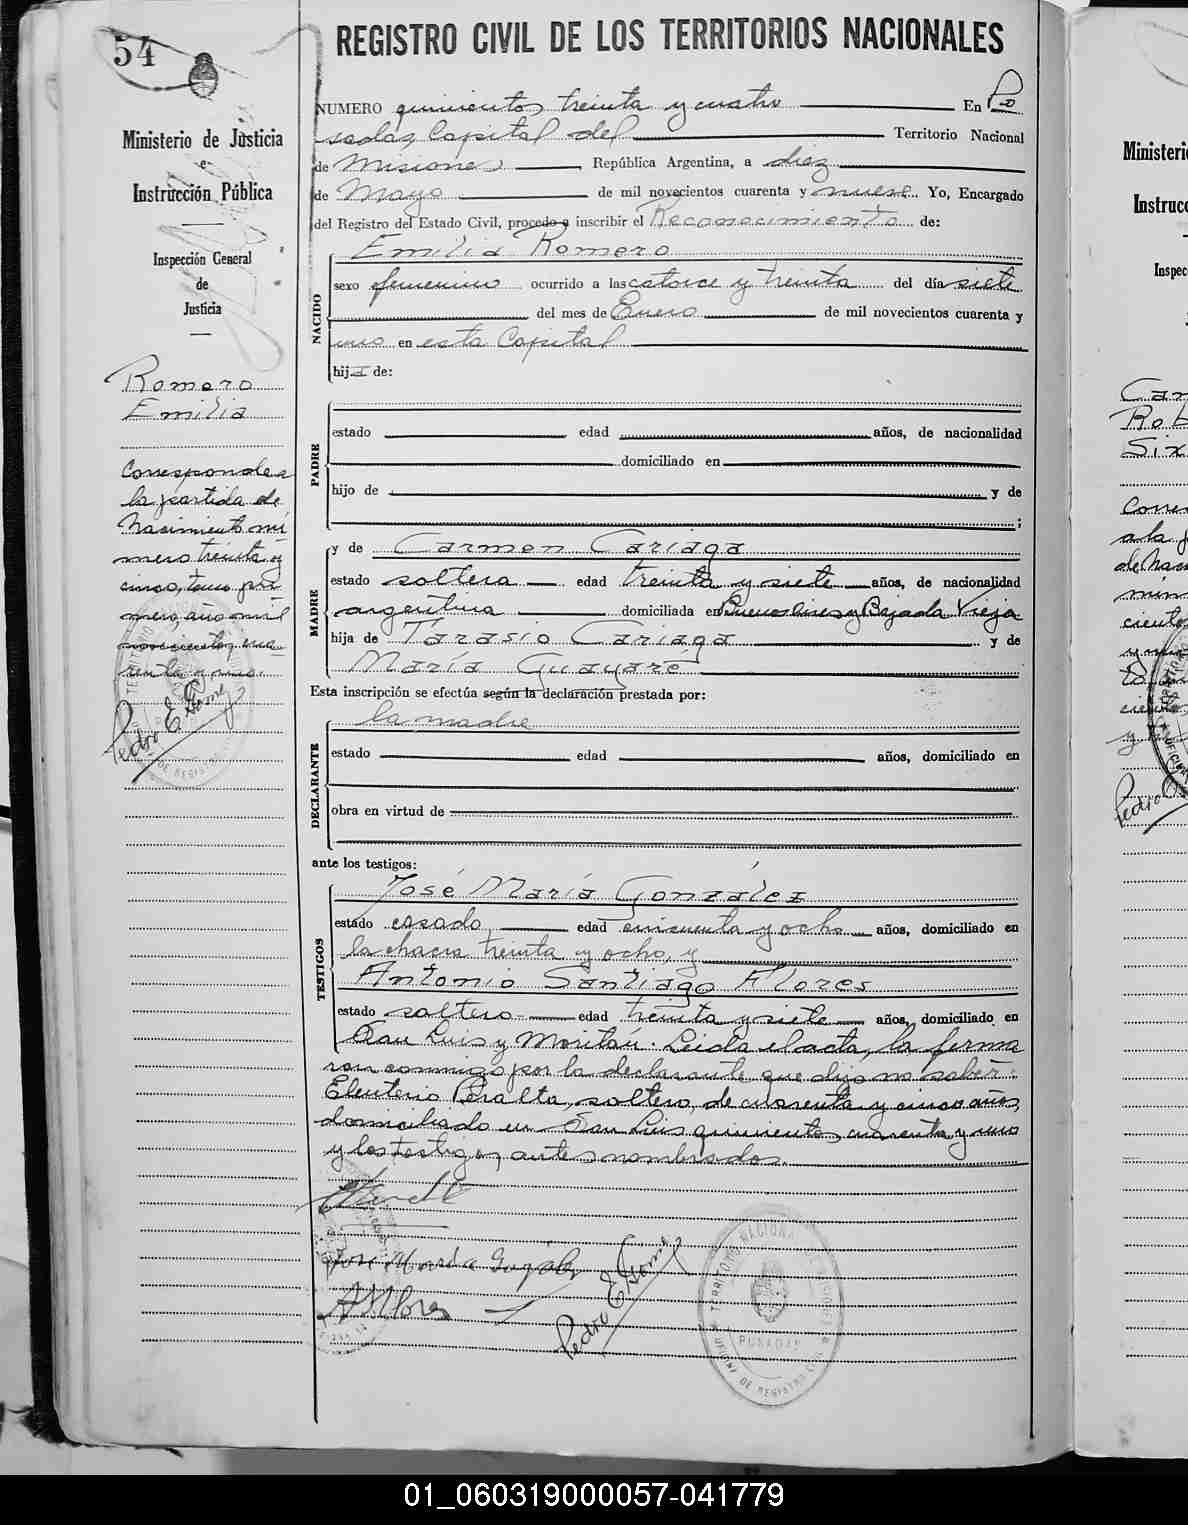 54
REGISTRO CIVIL DE LOS TERRITORIOS NACIONALES
Ministerio de Justicia
e
Instrucción Pública
Inspección General
de
Justicia
Romero
Emilia
Corresponde a
la partida de
Nacimiento nú
mero treinta y
cinco, tomo pri
mero, año mil
novecientos cua
renta y uno.
Pedro E. Gomez
NUMERO quinientos treinta y cuatro En Po
sadas Capital del Territorio Nacional
de Misiones República Argentina, a diez
de Mayo de mil novecientos cuarenta y nueve. Yo, Encargado
del Registro del Estado Civil, procedo a inscribir el Reconocimiento de:
NACIDO
Emilia Romero
sexo femenino ocurrido a las catorce y treinta del día siete
del mes de Enero de mil novecientos cuarenta y
uno en esta Capital
hija de:
PADRE
estado edad años, de nacionalidad
domiciliado en
hijo de y de
;
MADRE
y de Carmen Cariaga
estado soltera edad treinta y siete años, de nacionalidad
argentina domiciliada en Buenos Aires y Bajada Vieja
hija de Tarasio Cariaga y de
María Guayaré
Esta inscripción se efectúa según la declaración prestada por:
DECLARANTE
la madre
estado edad años, domiciliado en
obra en virtud de
ante los testigos:
TESTIGOS
José María González
estado casado edad cincuenta y ocho años, domiciliado en
la chacra treinta y ocho, y
Antonio Santiago Flores
estado soltero edad treinta y siete años, domiciliado en
San Luis y Moritán. Leida el acta, la firma
ron conmigo por la declarante que dijo no saber:
Eleuterio Peralta, soltero, de cuarenta y cinco años,
domiciliado en San Luis quinientos cuarenta y uno
y los testigos antes nombrados.
José María Gonzalez
A S Flores
Pedro E. Gomez
TERRITORIO NACIONAL DE MISIONES
POSADAS
OFICINA DE REGISTRO CIVIL
Ministeri
Instrucc
Inspec
Car
Rob
Six
Corres
a la p
de Nac
mun
ciento
Pedro
01_060319000057-041779